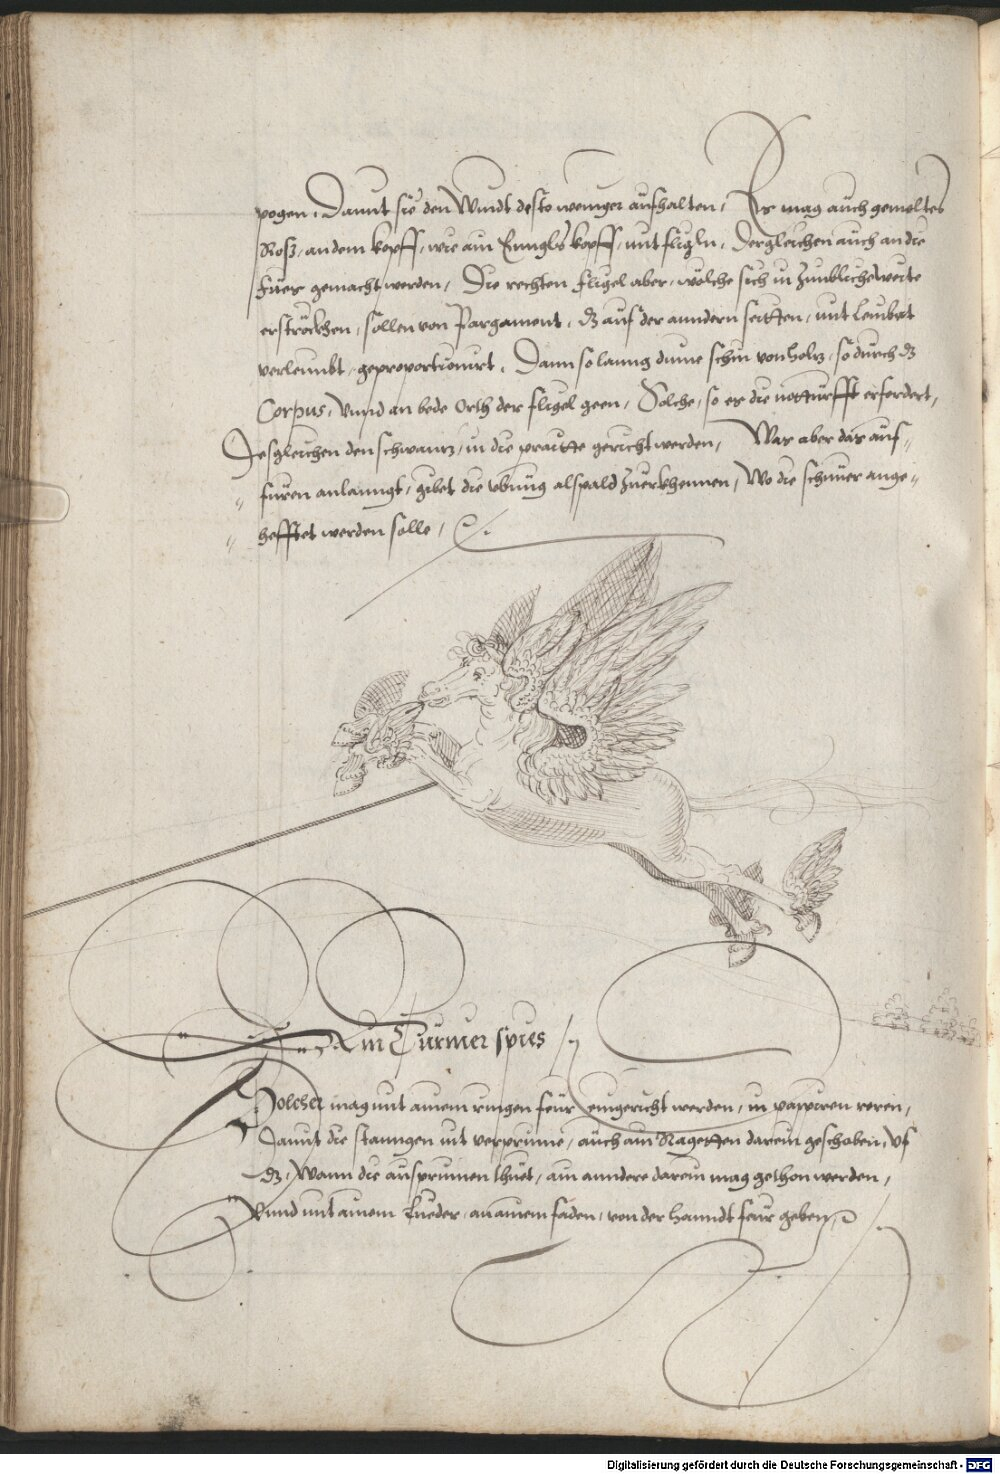 pogen. Damit sie den Windt desto weniger aufhalten, Es mag auch gemeltes
Roß, an dem kopff, wie ain Ennglß kopff, mit fligln. Dergleichen auch an die
füeß gemacht werden, Die rechten fligel aber, wölche sich in zimbliche weite
erströckhen, sollen von Pargament, dz auf der anndern seitten, mit leinbat
verleimbt, geproportionirt. Dann so lanng dinne schin von holtz, so durch dz
Corpus, Unnd an bede Orth der fligel geen, Solche, so es die notturfft erfordert,
Desgleichen den schwantz, in die praitte gericht werden, Was aber das auf-
füren anlanngt, gibet die vbung alspald zuerkhennen, Wo die schnuer ange-
hefftet werden solle,
Ain Turnier spies
Solcher mag mit ainem ringen feur eingericht werden, in pappiren roren,
Damit die stanngen nit verprinne, auch ain Ragetten darein geschoben, Vf
dz, Wann die ausprunnen thuet, ain anndere darein mag gethon werden,
Unnd mit ainem Lueder, an ainem faden, von der hanndt feur geben,
Digitalisierung gefördert durch die Deutsche Forschungsgemeinschaft - DFG